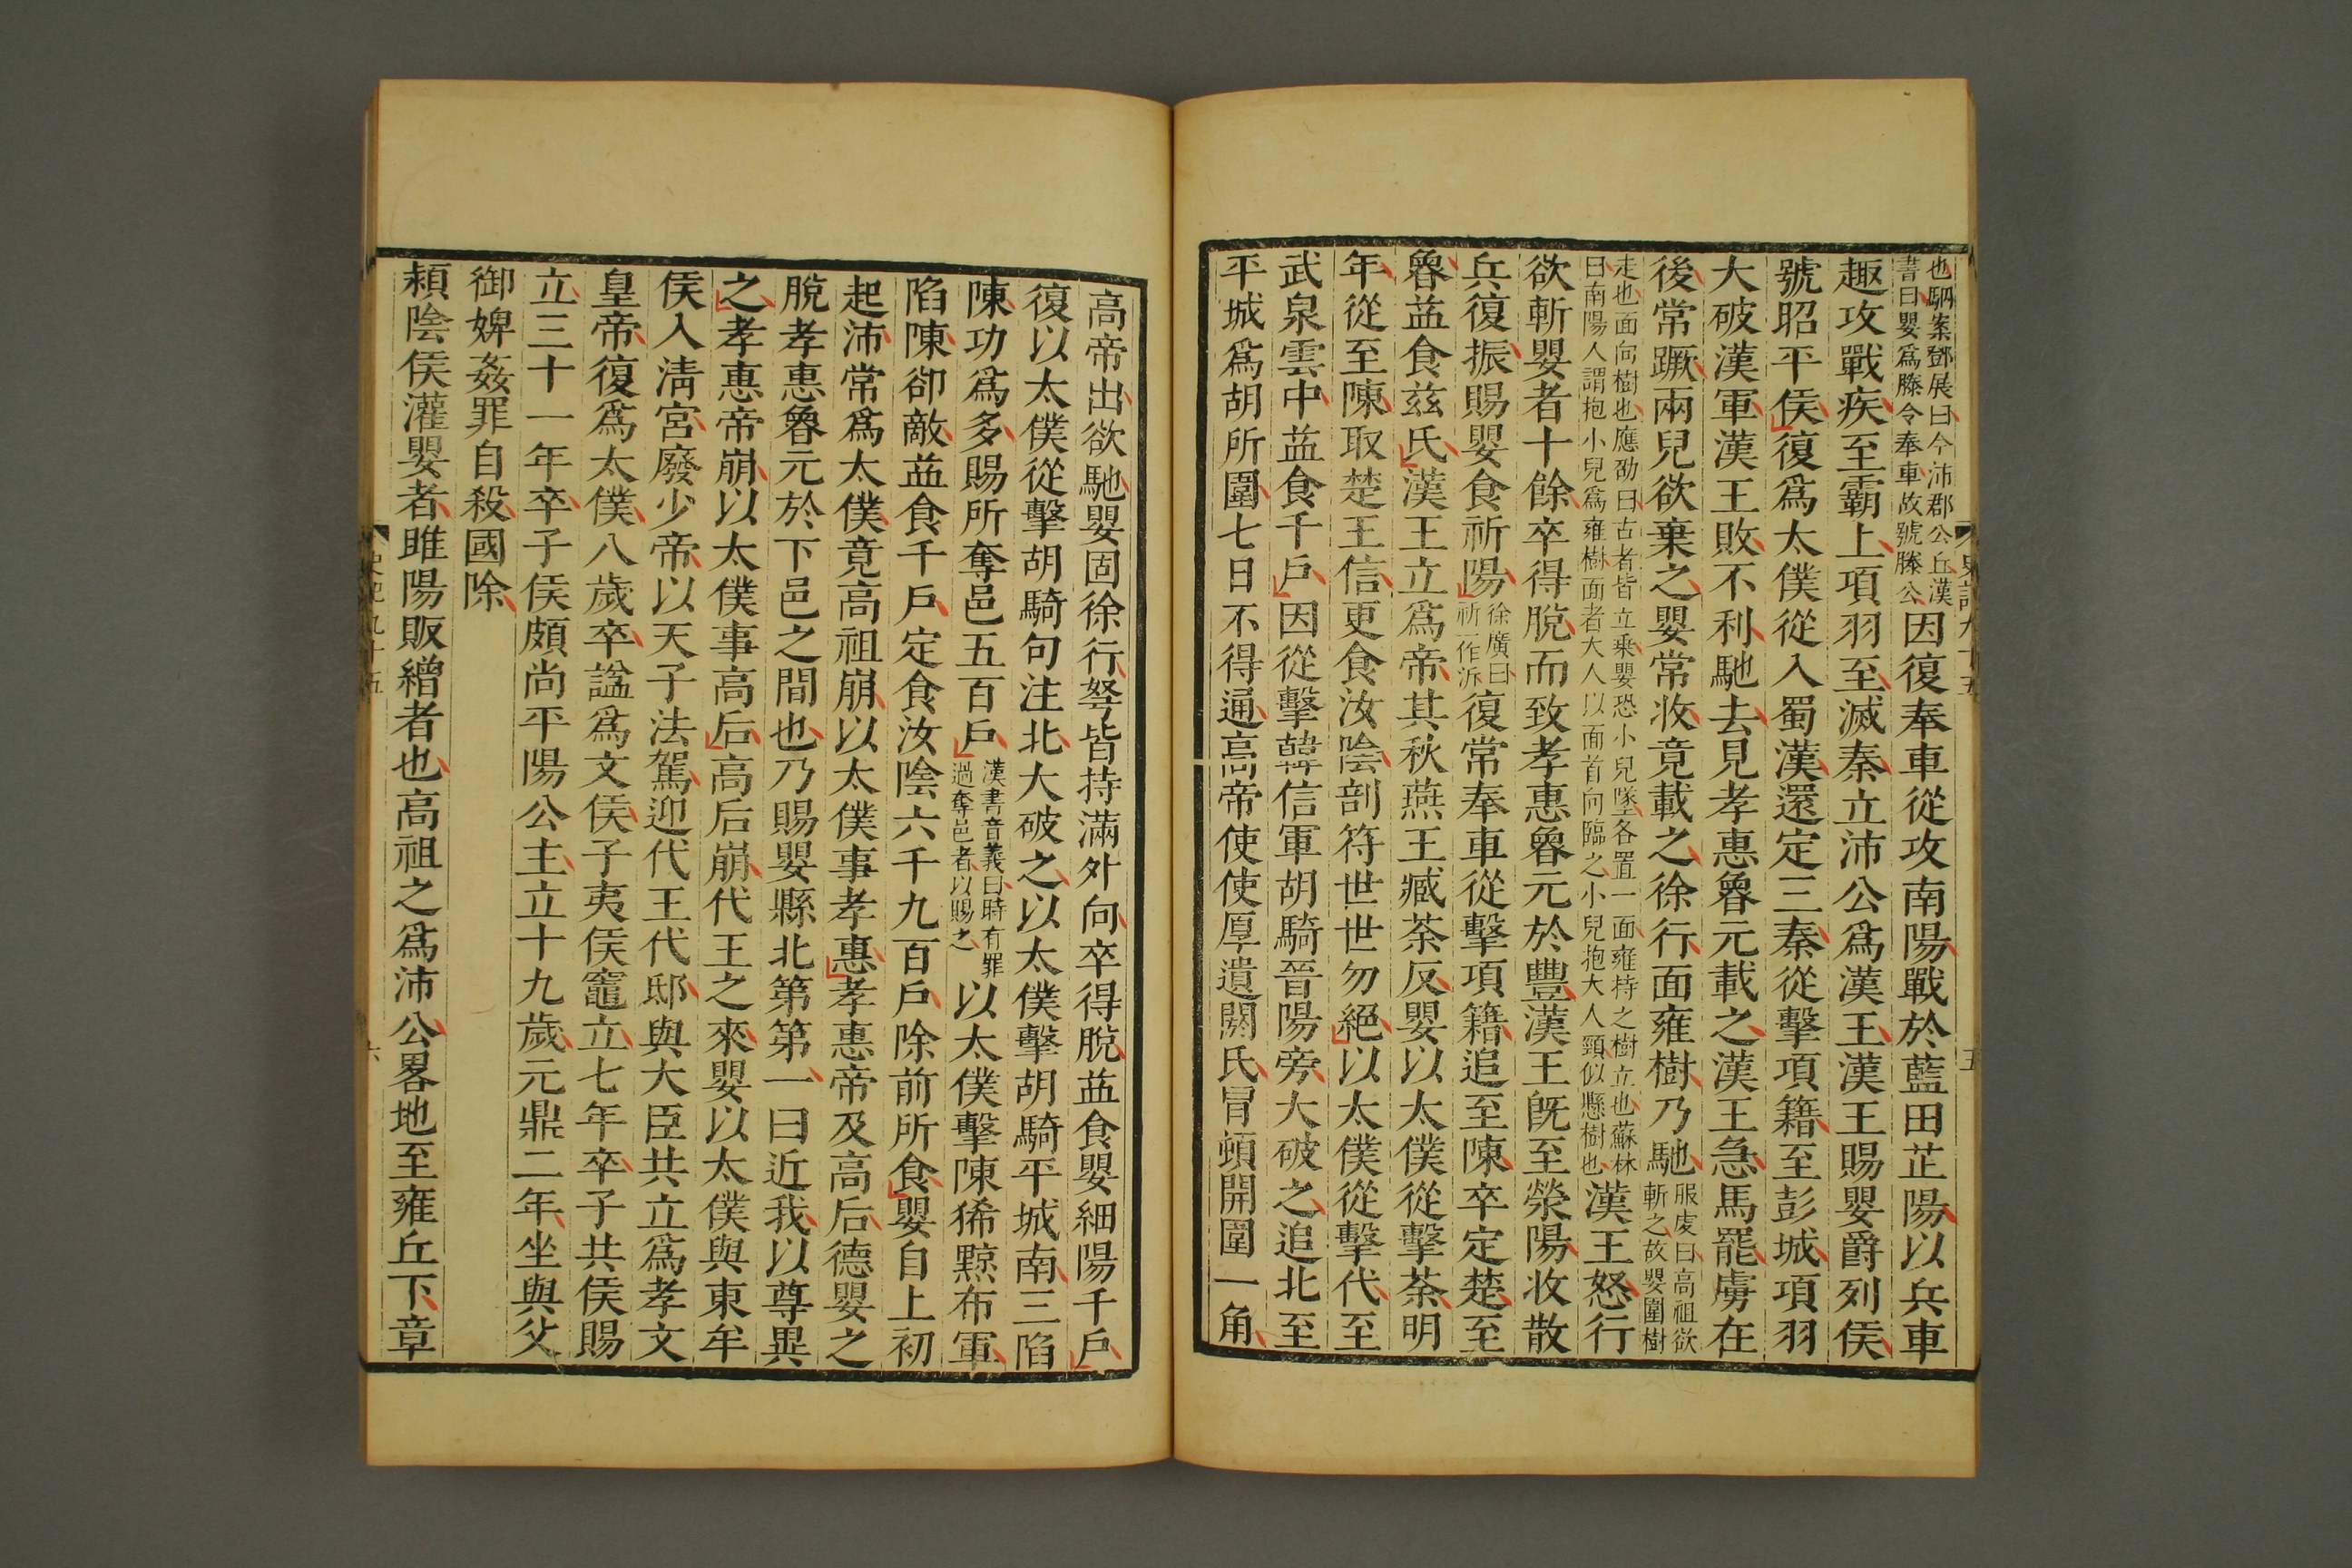 也駰案鄧展曰今沛郡公丘漢
書曰嬰爲滕令奉車故號滕公
因復奉車從攻南陽戰於藍田芷陽以兵車
趣攻戰疾至霸上項羽至滅秦立沛公爲漢王漢王賜嬰爵列侯
號昭平侯復爲太僕從入蜀漢還定三秦從擊項籍至彭城項羽
大破漢軍漢王敗不利馳去見孝惠魯元載之漢王急馬罷虜在
後常蹶兩兒欲棄之嬰常收竟載之徐行面雍樹乃馳
服虔曰高祖欲
斬之故嬰圍樹
走也面向樹也應劭曰古者皆立乘嬰恐小兒墜各置一面雍持之樹立也蘇林
曰南陽人謂抱小兒爲雍樹面者大人以面首向臨之小兒抱大人頸似懸樹也
漢王怒行
欲斬嬰者十餘卒得脫而致孝惠魯元於豐漢王旣至滎陽收散
兵復振賜嬰食祈陽
徐廣曰
祈一作沂
復常奉車從擊項籍追至陳卒定楚至
魯益食茲氏漢王立爲帝其秋燕王臧荼反嬰以太僕從擊荼明
年從至陳取楚王信更食汝陰剖符世世勿絕以太僕從擊代至
武泉雲中益食千戶因從擊韓信軍胡騎晉陽旁大破之追北至
平城爲胡所圍七日不得通高帝使使厚遺閼氏冒頓開圍一角
史記九十五
五
高帝出欲馳嬰固徐行弩皆持滿外向卒得脫益食嬰細陽千戶
復以太僕從擊胡騎句注北大破之以太僕擊胡騎平城南三陷
陳功爲多賜所奪邑五百戶
漢書音義曰時有罪
過奪邑者以賜之
以太僕擊陳豨黥布軍
陷陳卻敵益食千戶定食汝陰六千九百戶除前所食嬰自上初
起沛常爲太僕竟高祖崩以太僕事孝惠孝惠帝及高后德嬰之
脫孝惠魯元於下邑之間也乃賜嬰縣北第第一曰近我以尊異
之孝惠帝崩以太僕事高后高后崩代王之來嬰以太僕與東牟
侯入淸宮廢少帝以天子法駕迎代王代邸與大臣共立爲孝文
皇帝復爲太僕八歲卒諡爲文侯子夷侯竈立七年卒子共侯賜
立三十一年卒子侯頗尚平陽公主立十九歲元鼎二年坐與父
御婢姦罪自殺國除
潁陰侯灌嬰者睢陽販繒者也高祖之爲沛公畧地至雍丘下章
史記九十五
六